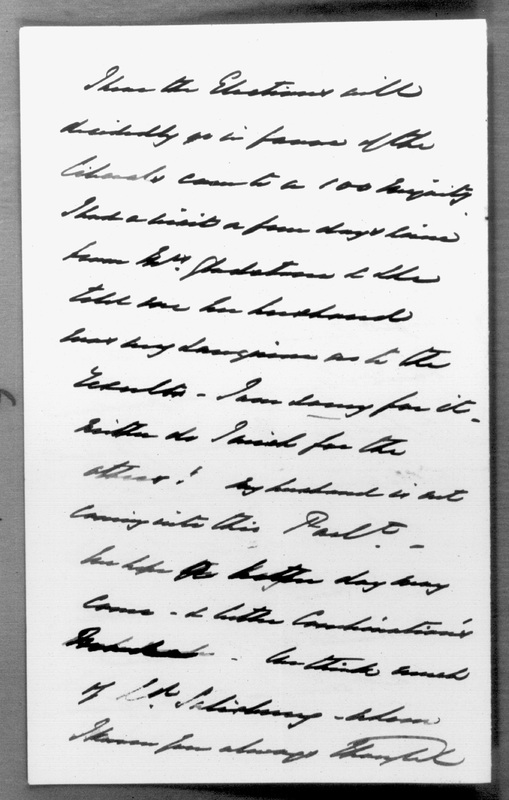 I hear the Elections will
decidedly go in favour of the
liberals count a 100 Majority
I had a visit a few days since
from Mrs. Gladstone & she
told me her husband
was very sanguine as to the
Results - I am sorry for it -
neither do I wish for the
others! My husband is not
coming into this Parlt. -
We hope a better day may
come - & better Combinations
- We think much
of Ld. Salisbury - whom
I know you always thought